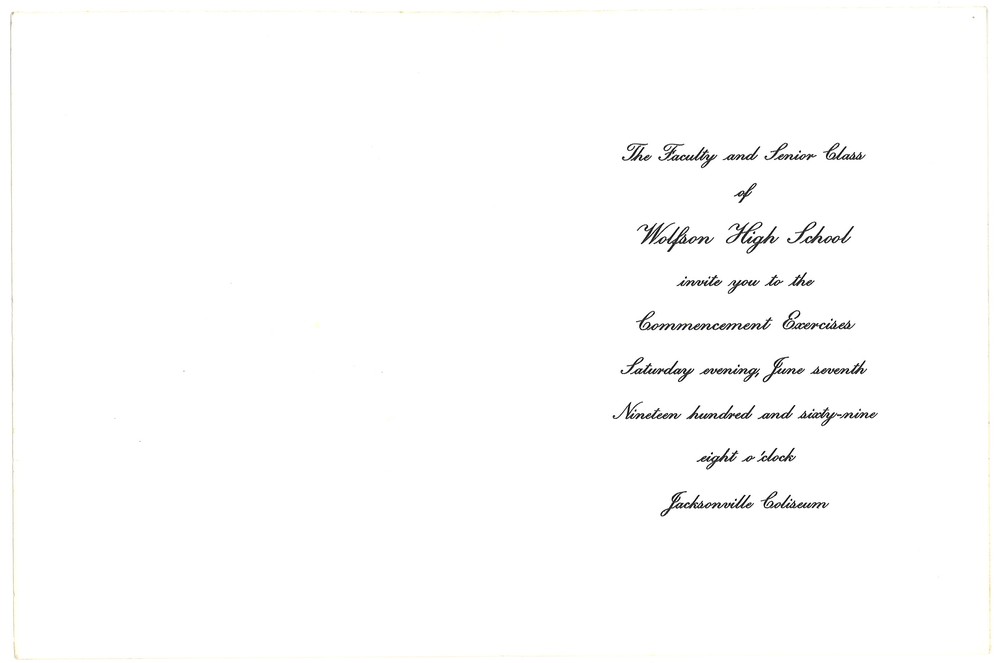 The Faculty and Senior Class
of
Wolfson High School
invite you to the
Commencement Exercises
Saturday evening, June seventh
Nineteen hundred and sixty-nine
eight o'clock
Jacksonville Coliseum